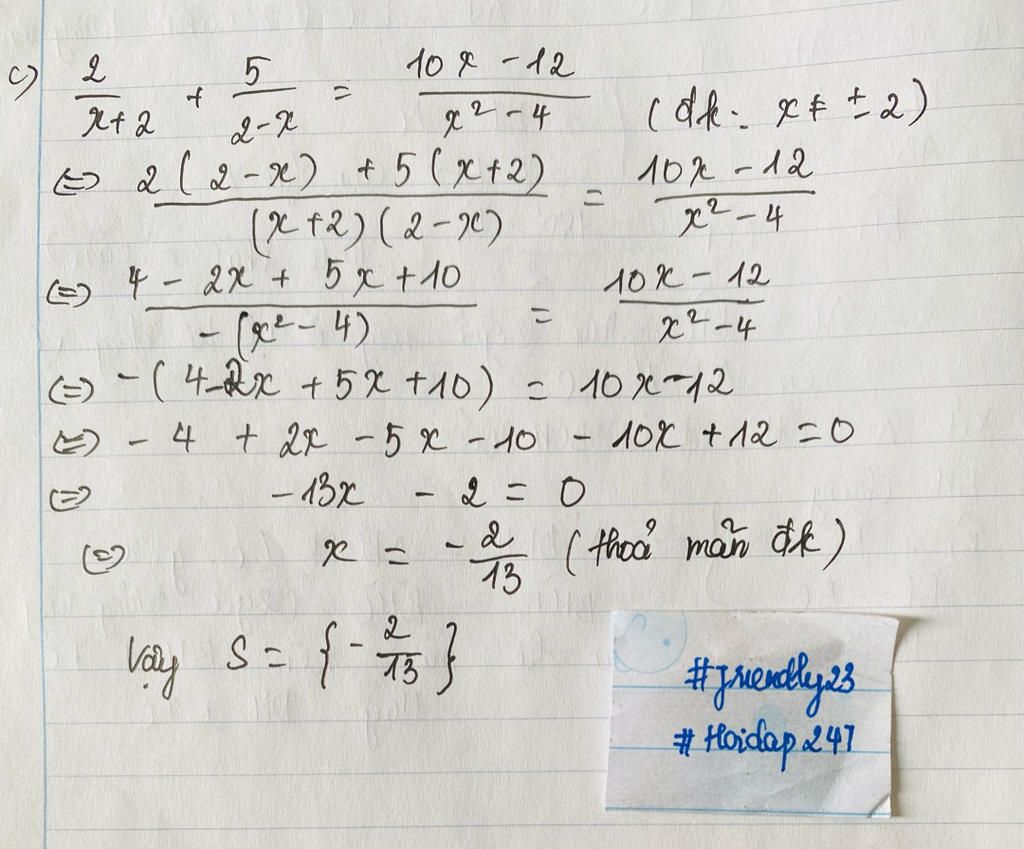 c) 2/(x+2) + 5/(2-x) = (10x - 12)/(x² - 4) (đk: x ≠ ± 2)
⇔ (2(2-x) + 5(x+2))/((x+2)(2-x)) = (10x - 12)/(x² - 4)
⇔ (4 - 2x + 5x + 10)/(-(x² - 4)) = (10x - 12)/(x² - 4)
⇔ -(4 - 2x + 5x + 10) = 10x - 12
⇔ - 4 + 2x - 5x - 10 - 10x + 12 = 0
⇔ -13x - 2 = 0
⇔ x = -2/13 (thoả mãn đk)
Vậy S = {-2/13}
#friendly23
#Hoidap247